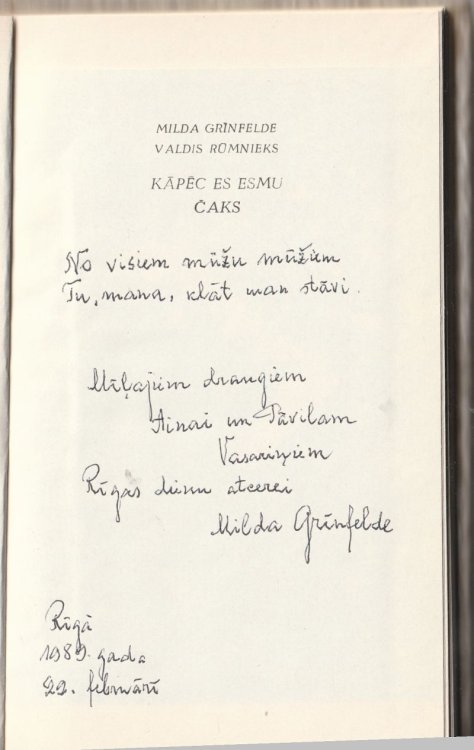 MILDA GRĪNFELDE
VALDIS RŪMNIEKS
KĀPĒC ES ESMU
ČAKS
No visiem mūžu mūžiem
Tu, mana, klāt man stāvi.
Mīļajiem draugiem
Ainai un Pāvilam
Vasariņiem
Rīgas dienu atcerei
Milda Grīnfelde
Rīgā
1989. gada
22. februārī